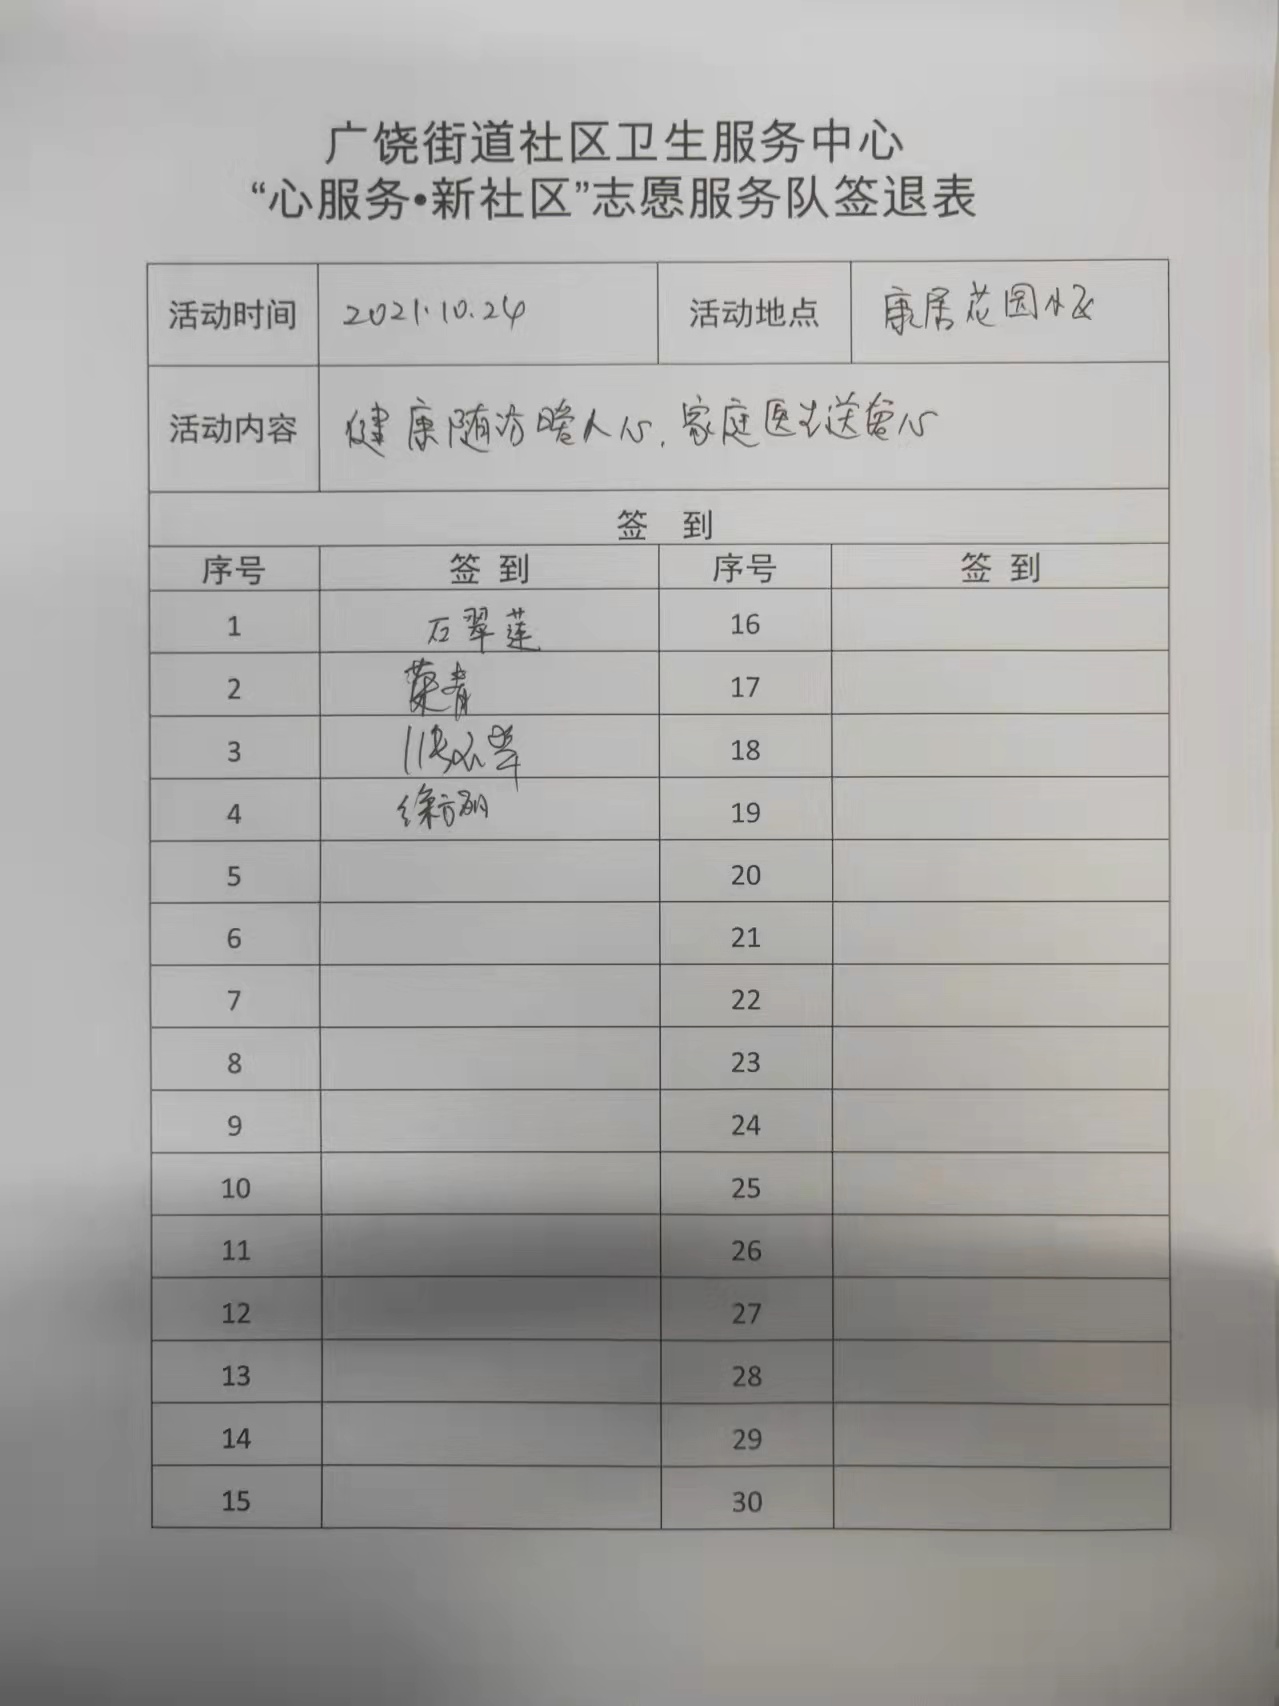 广饶街道社区卫生服务中心
“心服务•新社区”志愿服务队签退表
活动时间 2021.10.24 活动地点 康居花园小区
活动内容 健康随访暖人心,家庭医生送爱心
签 到
序号 签到 序号 签到
1 石翠莲 16
2 荣青 17
3 18
4 徐方丽 19
5 20
6 21
7 22
8 23
9 24
10 25
11 26
12 27
13 28
14 29
15 30